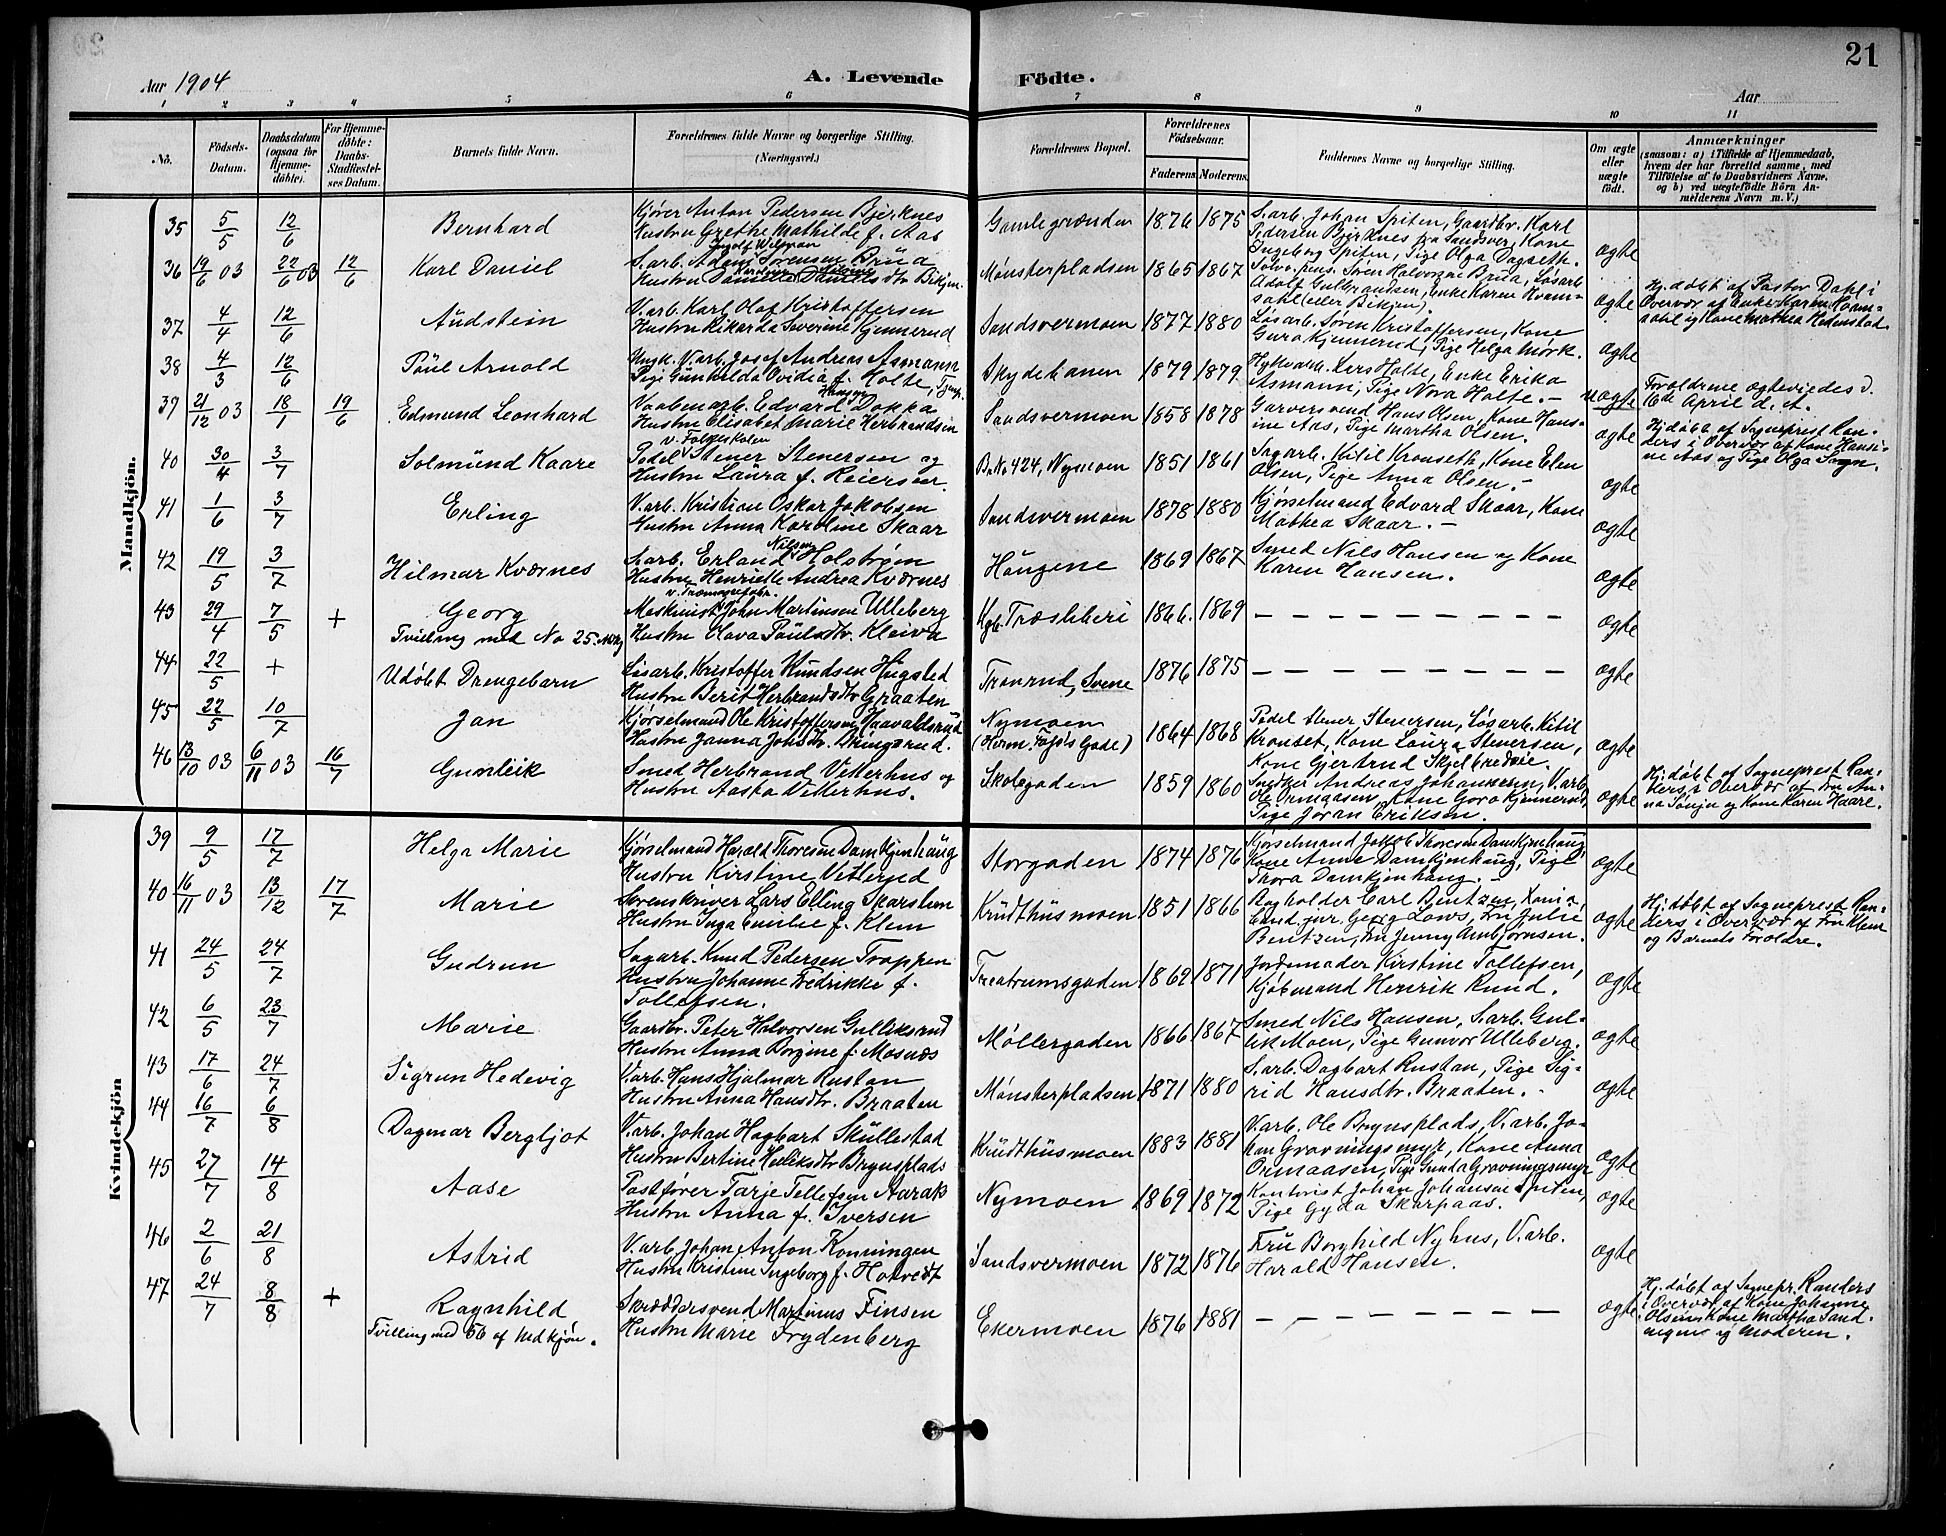 21
Aar 1904
A. Levende Födte.
Aar
1 2 3 4 5 6 7 8 9 10 11
No.
Födsels-Datum.
Daabsdatum (ogsaa for Hjemme-döbte).
For Hjemme-döbte: Daabs-Stadfæstel-ses Datum.
Barnets fulde Navn.
Forældrenes fulde Navne og borgerlige Stilling.
(Næringsvei.)
Forældrenes Bopæl.
Forældrenes Födselsaar.
Faderens. Moderens.
Faddernes Navne og borgerlige Stilling.
Om ægte eller uægte födt.
Anmærkninger
(saasom: a) i Tilfælde af Hjemmedaab,
hvem der har forrettet samme, med
Tilföielse af to Daabsvidners Navne,
og b) ved uægtefödte Börn An-
melderens Navn m.V.)
Mandkjön.
35 5/5 12/6 Bernhard
Kjører Anton Pedersen Bjerknes
Hustru Grethe Mathilde f. Aas
Gamlegrænden 1876 1875
S.arb. Johan Spiten, Gaardbr. Karl
Pedersen Bjerknes fra Sandsvær, Kone
Ingeborg Spiten, Pige Olga Dagseth.
ægte
36 19/6 03 22/6 03 12/6 Karl Daniel
S.arb. Adam Sørensen Brua
Mønsterpladsen 1865 1867
Solv. pens. Søren Halvorsen Brua, Løsarb
Adolf Gulbrandsen, Enke Karen Kvam-
sahl (eller Bikjen)
ægte
Hj. døbt af Pastor Dahl i
Overvær af Enke Karen Kvam-
sahl og Kone Mathea Hedenstad
37 4/4 12/6 Audstein
V.arb. Karl Olaf Kristoffersen
Hustru Rikarda Severine Kjennerud
Sandsvermoen 1877 1880
Løsarb. Søren Kristoffersen, Kone
Guro Kjennerud, Pige Helga Mørk.
ægte
38 4/3 12/6 Paul Arnold
Ungk. V.arb. Josef Andreas Asmann
Pige Gunhilda Ovidia f. Holte,
Skydebanen 1879 1879
Lars Holte, Enke Erika
Asmann, Pige Nora Holte. -
uægte
Forældrene ægteviedes d.
16de April d. A.
39 21/12 03 18/1 19/6 Edmund Leonhard
Hansen
Vaabenarb. Edvard Dokka
Hustru Elisabet Marie Herbrandsen
Sandsvermoen 1858 1878
Garversvend Hans Olsen, Kone Hans-
ine Aas, Pige Martha Olsen.
ægte
Hj. døbt af Sogneprest Ran-
ders i Overvær af Kone Hansi-
ne Aas og Pige Olga
40 30/4 3/7 Solmund Kaare
v. Folkeskolen
Pedel Stener Stenersen og
Hustru Laura f. Reiersen.
B.No 424, Nymoen 1851 1861
Sagarb. Kitil Kronseth, Kone Elen
Olsen, Pige Anna Olsen. -
ægte
41 1/6 3/7 Erling
V.arb. Kristian Oskar Jakobsen
Hustru Anna Karoline Skaar
Sandsvermoen 1878 1880
Kjørselmand Edvard Skaar, Kone
Mathea Skaar. -
ægte
42 19/5 3/7 Hilmar Kværnes
Nilsen
S.arb. Erland Holstrøm
Hustru Henriette Andrea Kværnes
Haugene 1869 1867
Smed Nils Hansen og Kone
Karen Hansen.
ægte
43 29/4 7/5 + Georg
Tvilling med No 25
Maskinist John Martinsen Ulleberg
Hustru Olava Paulsdtr. Kleiva
Kgb. Træsliberi 1866. 1869
- - - - - - - - -
ægte
44 22/5 + Udøbt Drengebarn
Løsarb. Kristoffer Knudsen Hugsted
Hustru Berit Herbrandsdtr Graaten
Tranrud, Svene 1876 1875
- - - - - - - - -
ægte
45 22/5 10/7 Jan
Kjørselmand Ole Kristoffersen Haavaldsrud
Hustru Janna Johsdtr.
Nymoen
(Herm. Foss's Gade) 1864 1868
Pedel Stener Stenersen, Løsarb. Kitil
Kronset, Kone Laura Stenersen,
Kone Gjertrud Skjelbredeie.
ægte
46 13/10 03 6/11 03 16/7 Gunleik
Smed Herbrand Vetterhus og
Hustru Aasta Vetterhus.
Skolegaden 1859 1860
Andreas Johannesen, V.arb.
Ole Ormaasen, Kone Goro Kjennerud,
Pige Jøran Eriksen.
ægte
Hj. døbt af Sogneprest Ran-
ders i Overvær af Fru An-
na og Kone Karen Haare.
Kvindekjön
39 9/5 17/7 Helga Marie
Kjørselmand Harald Thoresen Damkjenhaug
Hustru Kirstine Vetterud
Storgaden 1874 1876
Kjørselmand Jakob Thoresen Damkjenhaug
Kone Anne Damkjenhaug, Pige
Thora Damkjenhaug. -
ægte
40 16/11 03 13/12 17/7 Marie
Sorenskriver Lars Elling Skarstein
Hustru Inga Emilie f. Klem
Krudthusmoen 1851 1866
Bogholder Carl Bentzen,
Cand. jur. Georg Lows, Fru Julie
Bentzen, Fru Jenny Ambjørnsen.
ægte
Hj. døbt af Sogneprest Ran-
ders i Overvær af Fru Klem
og Barnets Forældre.
41 24/5 24/7 Gudrun
Sagarb. Knud Pedersen Trappen
Hustru Johanne Fredrikke f.
Tollefsen.
Treatrumsgaden 1862 1871
Jordemoder Kirstine Tollefsen,
Kjøbmand Henrik Ruud.
ægte
42 6/5 23/7 Marie
Gaardbr. Peter Halvorsen Gulliksrud
Hustru Anna Borgine f. Mosnæs
Møllergaden 1866 1867
Smed Nils Hansen, S.arb. Gul-
lik Moen, Pige Gunvor Ulleberg.
ægte
43 17/6 24/7 Sigrun Hedevig
V.arb. Hans Hjalmar Rustan
Hustru Anna Hansdtr. Braaten
Mønsterpladsen 1871 1880
S.arb. Dagbart Rustan, Pige Sig-
rid Hansdtr. Braaten. -
ægte
44 16/7 6/8 Dagmar Bergljot
V.arb. Johan Hagbart Skullestad
Hustru Bertine Henriksdtr Brynsplads
Krudthusmoen 1883 1881
V.arb. Ole Brynsplads, V.arb. Jo-
han Gravningsmyr, Kone Anna
Ormaasen, Pige Gunda Gravningsmyr
ægte
45 27/7 14/8 Aase
Postfører Tarje Tellefsen Aarak
Hustru Anna f. Iversen
Nymoen 1869 1872
Kontorist Johan Johansen Spiten,
Pige Gyda Skarpaas.
ægte
46 2/6 21/8 Astrid
V.arb. Johan Anton Konningen
Hustru Kristine Ingeborg f. Hotvedt
Sandsvermoen 1872 1876
Fru Borghild Nyhus, V.arb.
Harald Hansen.
ægte
47 24/7 8/8 + Ragnhild
Tvilling med 56 af Mdkjøn.
Skræddersvend Martinus Finsen
Hustru Marie Frydenberg
Ekermoen 1876 1881
- - - - - - - - -
ægte
Hj. døbt af Sognepr. Randers
i Overvær af Kone Johanne
Olsen, Kone Martha Sand-
og Moderen.